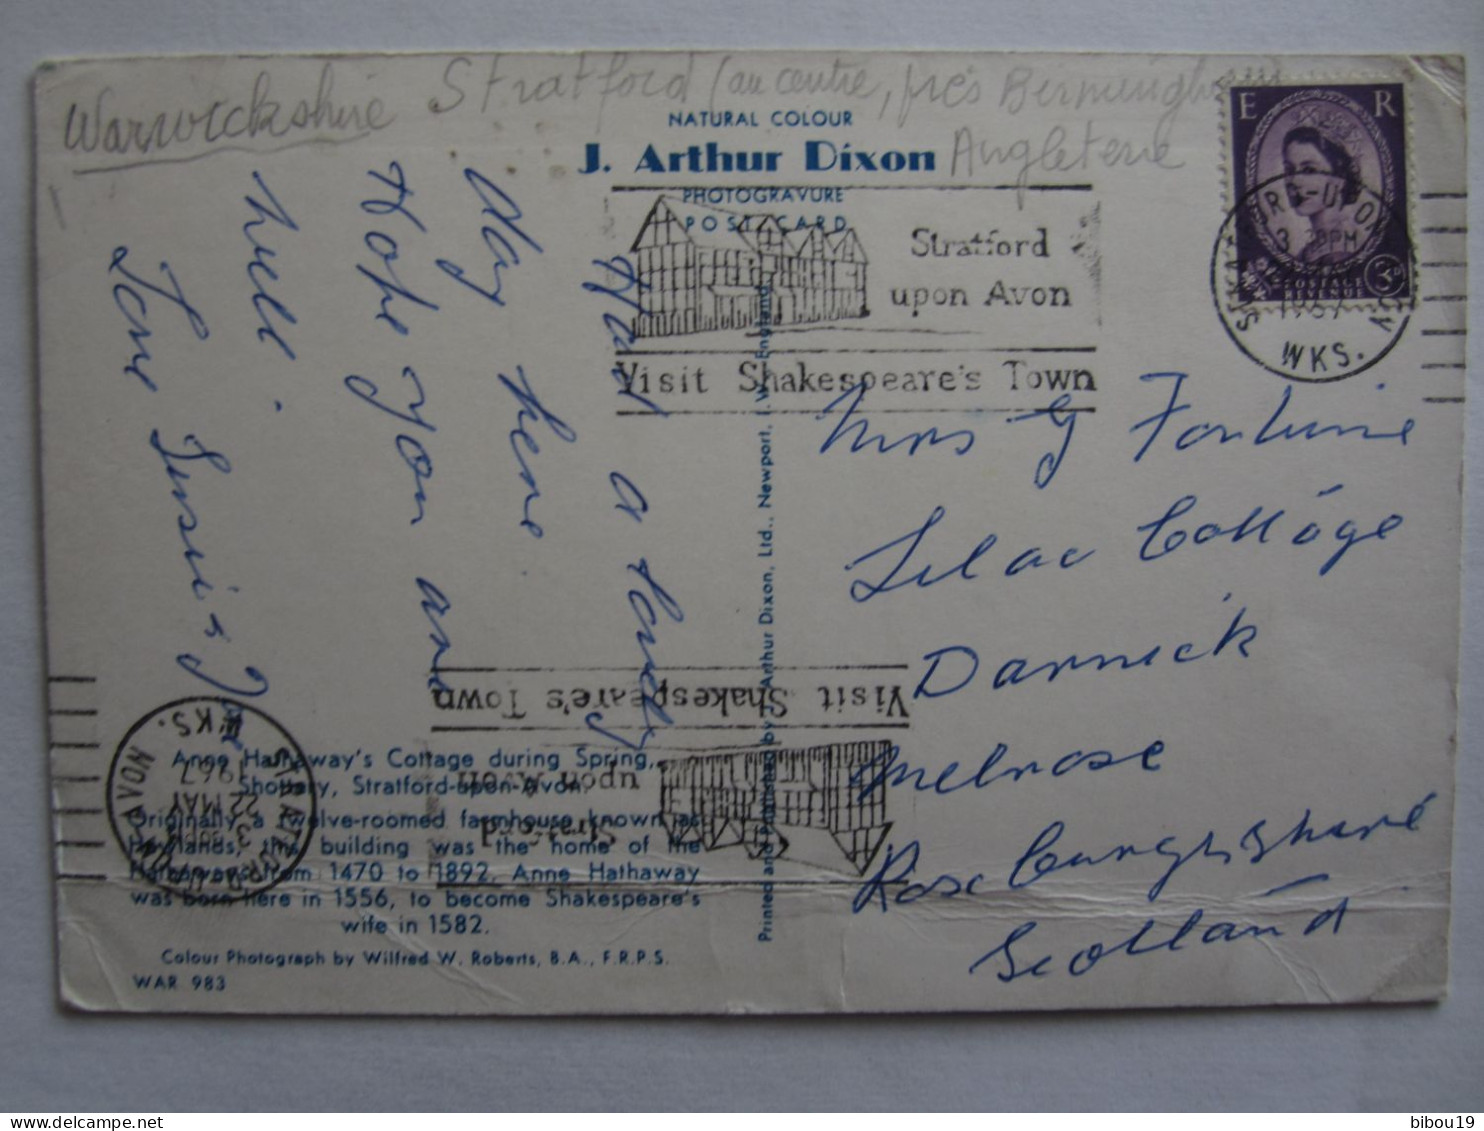 Warwickshire Stratford (au centre, près Birmingham
Angleterre
NATURAL COLOUR
J. Arthur Dixon
PHOTOGRAVURE
POST CARD
E R
3D
POSTAGE
REVENUE
WKS.
Stratford
upon Avon
Visit Shakespeare's Town
Had a lovely
day here
Hope you are
well.
Love Susie &
Mrs G Fortune
Lilac Cottage
Darnick
Melrose
Roxburghshire
Scotland
Printed and Published by J. Arthur Dixon, Ltd., Newport, I.W., England
Visit Shakespeare's Town
Stratford
upon Avon
STRATFORD-UPON-AVON
22 MAY
1967
WKS.
Anne Hathaway's Cottage during Spring,
Shottery, Stratford-upon-Avon.
Originally a twelve-roomed farmhouse known as
Hewlands, this building was the home of the
Hathaways from 1470 to 1892. Anne Hathaway
was born here in 1556, to become Shakespeare's
wife in 1582.
Colour Photograph by Wilfred W. Roberts, B.A., F.R.P.S.
WAR 983
delcampe.net
bibou19